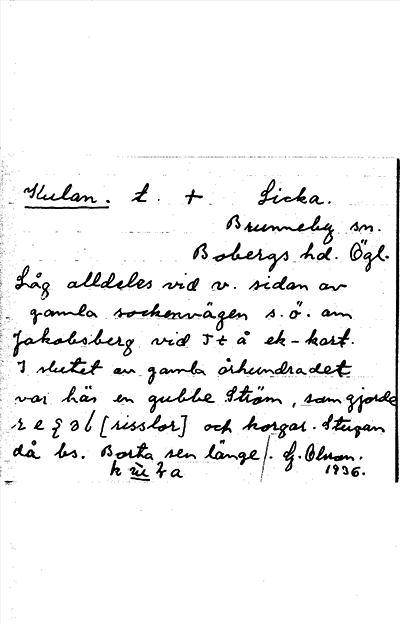 Kulan. t. + Sicka.
Brunneby sn.
Bobergs hd. Ögl.
Låg alldeles vid v. sidan av
gamla sockenvägen s.ö. om
Jakobsberg vid J t å ek-kart.
I slutet av gamla århundradet
var här en gubbe Ström, som gjorde
[risslor] och korgar. Stugan
då bs. Borta sen länge/. G. Olson.
1936.